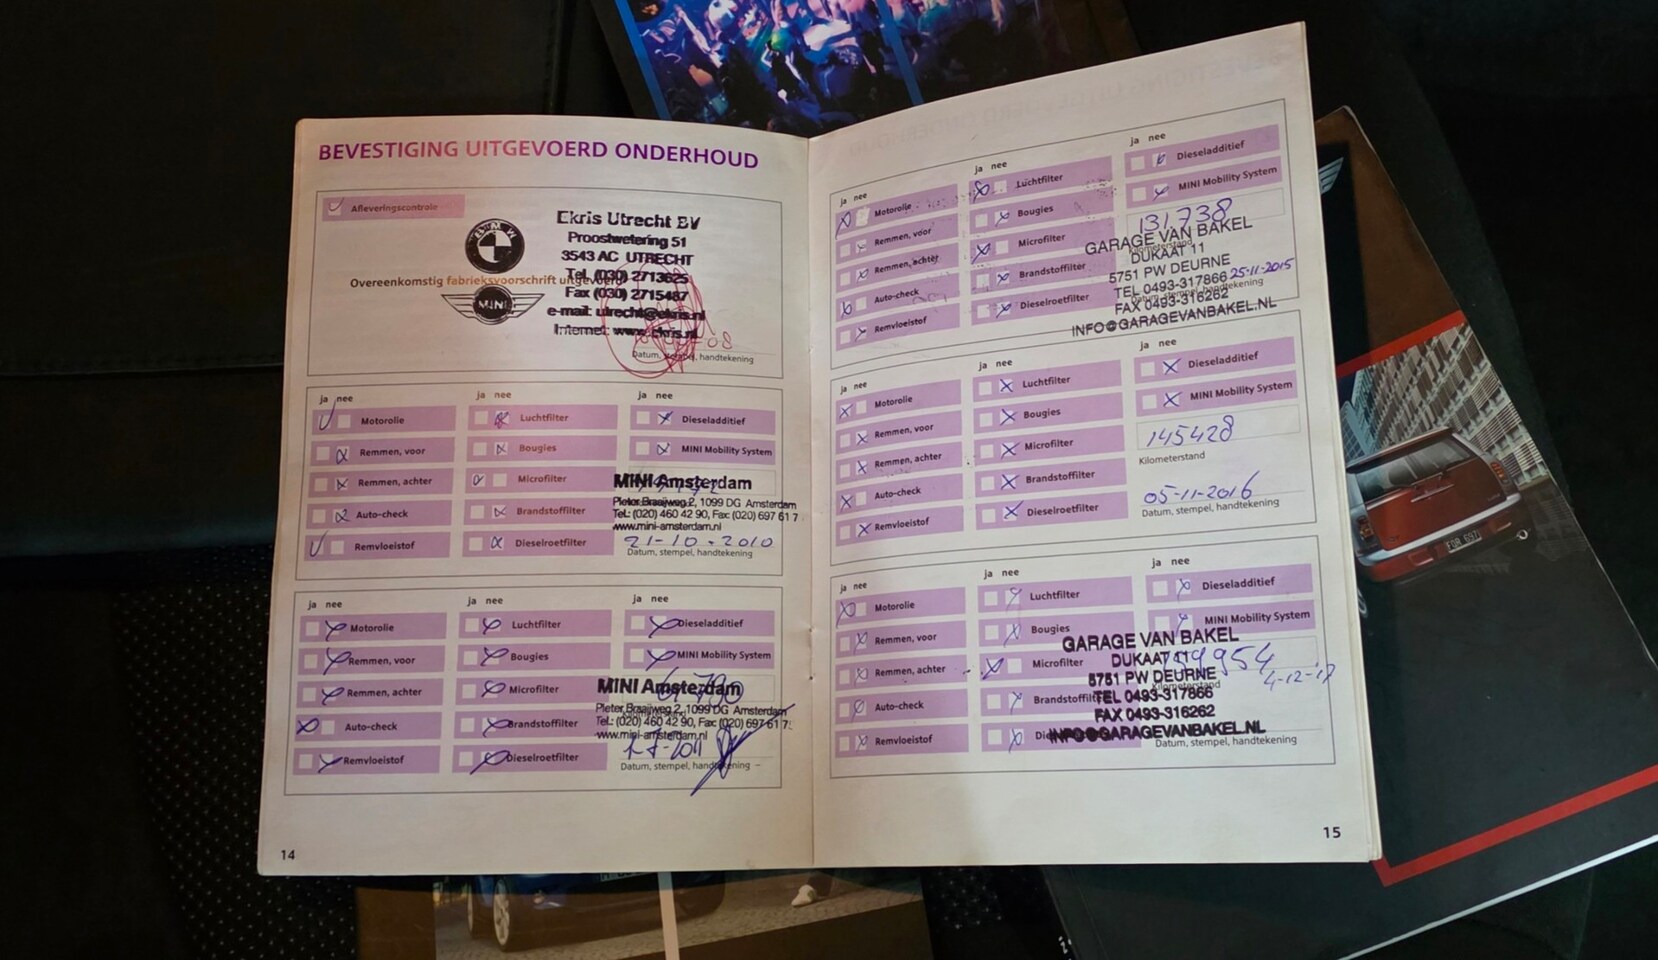 BEVESTIGING UITGEVOERD ONDERHOUD
Afleveringscontrole
BMW
Overeenkomstig fabrieksvoorschrift uitgevoerd
MINI
Ekris Utrecht BV
Proostwetering 51
3543 AC UTRECHT
Tel. (030) 2713625
Fax (030) 2715487
e-mail: utrecht@ekris.nl
Internet: www.ekris.nl
Datum, stempel, handtekening
ja nee
Motorolie
Remmen, voor
Remmen, achter
Auto-check
Remvloeistof
ja nee
Luchtfilter
Bougies
Microfilter
Brandstoffilter
Dieselroetfilter
ja nee
Dieseladditief
MINI Mobility System
MINI Amsterdam
Pieter Braaijweg 2, 1099 DG Amsterdam
Tel.: (020) 460 42 90, Fax: (020) 697 61 7
www.mini-amsterdam.nl
21-10-2010
Datum, stempel, handtekening
ja nee
Motorolie
Remmen, voor
Remmen, achter
Auto-check
Remvloeistof
ja nee
Luchtfilter
Bougies
Microfilter
Brandstoffilter
Dieselroetfilter
ja nee
Dieseladditief
MINI Mobility System
MINI Amsterdam
Pieter Braaijweg 2, 1099 DG Amsterdam
Tel.: (020) 460 42 90, Fax: (020) 697 61 7
www.mini-amsterdam.nl
Datum, stempel, handtekening
14
ja nee
Motorolie
Remmen, voor
Remmen, achter
Auto-check
Remvloeistof
ja nee
Luchtfilter
Bougies
Microfilter
Brandstoffilter
Dieselroetfilter
ja nee
Dieseladditief
MINI Mobility System
131.738
Kilometerstand
GARAGE VAN BAKEL
DUKAAT 11
5751 PW DEURNE
TEL 0493-317866
25-11-2015
FAX 0493-316262
Datum, stempel, handtekening
INFO@GARAGEVANBAKEL.NL
ja nee
Motorolie
Remmen, voor
Remmen, achter
Auto-check
Remvloeistof
ja nee
Luchtfilter
Bougies
Microfilter
Brandstoffilter
Dieselroetfilter
ja nee
Dieseladditief
MINI Mobility System
145428
Kilometerstand
05-11-2016
Datum, stempel, handtekening
ja nee
Motorolie
Remmen, voor
Remmen, achter
Auto-check
Remvloeistof
ja nee
Luchtfilter
Bougies
Microfilter
Brandstoffilter
ja nee
Dieseladditief
MINI Mobility System
GARAGE VAN BAKEL
DUKAAT 11
5751 PW DEURNE
Kilometerstand
4-12-17
TEL 0493-317866
FAX 0493-316262
INFO@GARAGEVANBAKEL.NL
Datum, stempel, handtekening
15